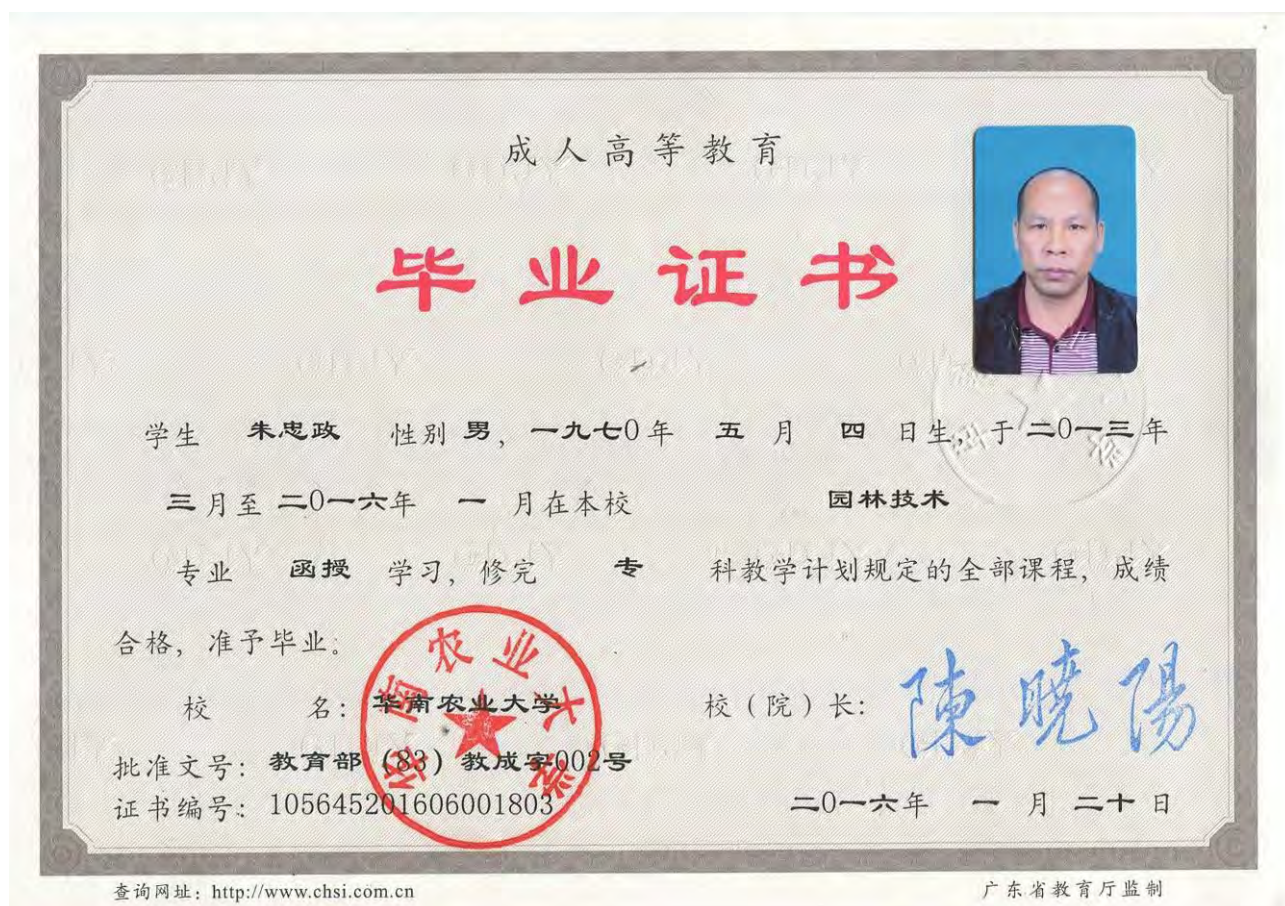 成人高等教育
毕业证书
学生 朱忠政 性别 男, 一九七0年 五 月 四 日生, 于二0一三年
三月至二0一六年 一 月在本校 园林技术
专业 函授 学习, 修完 专 科教学计划规定的全部课程, 成绩
合格, 准予毕业。
华南农业大学
校 名: 华南农业大学 校(院)长: 陳曉陽
批准文号: 教育部(83)教成字002号
证书编号: 105645201606001803 二0一六年 一 月 二十 日
查询网址: http://www.chsi.com.cn 广东省教育厅监制